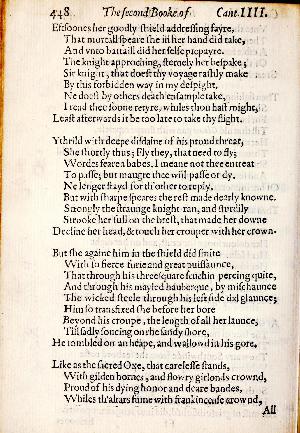 448 The second Booke of Cant. IIII.
Eftsoones her goodly shield addressing fayre,
That mortall speare she in her hand did take,
And vnto battaill did her selfe prepayre.
The knight approching, sternely her bespake;
Sir knight, that doest thy voyage rashly make
By this forbidden way in my despight,
Ne doest by others death ensample take,
I read thee soone retyre, whiles thou hast might,
Least afterwards it be too late to take thy flight.
Ythrild with deepe disdaine of his proud threat,
She shortly thus; Fly they, that need to fly;
Wordes feare n babes. I meane not thee entreat
To passe; but maugre thee will passe or dy.
Ne lenger stayd for th'other to reply,
But with sharpe speare the rest made dearly knowne.
Strongly the straunge knight ran, and sturdily
Strooke her full on the brest, that made her downe
Decline her head, & touch her crouper with her crown.
But she againe him in the shield did smite
With so fierce furie and great puissaunce,
That through his threesquare scuchin percing quite,
And through his mayled hauberque, by mischaunce
The wicked steele through his left side did glaunce;
Him so transfixed she before her bore
Beyond his croupe, the length of all her launce,
Till sadly soucing on the sandy shore,
He tombled on an heape, and wallowd in his gore.
Like as the sacred Oxe, that carelesse stands,
With gilden hornes, and flowry girlonds crownd,
Proud of his dying honor and deare bandes,
Whiles th'altars fume with frankincense arownd,
All